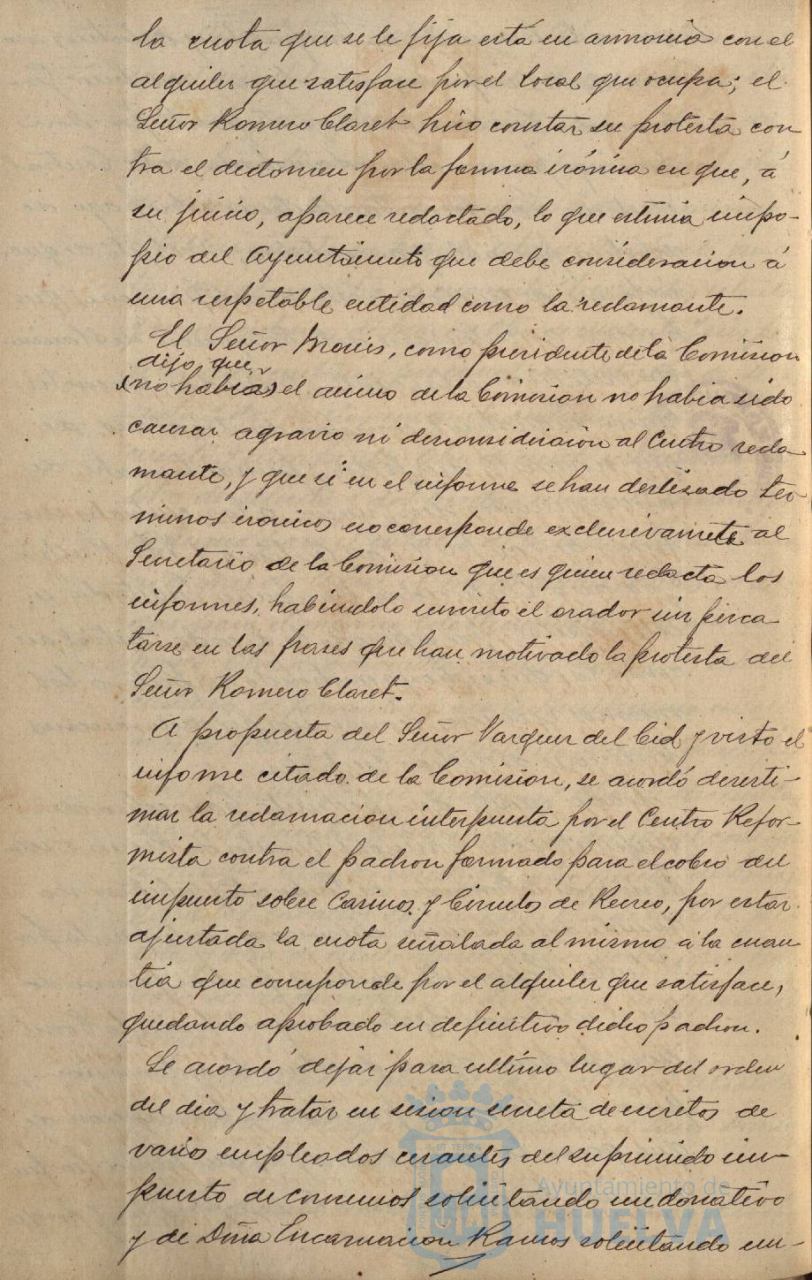 la cuota que se le fija está en armonia con el
alquiler que satisface por el local que ocupa; el
Señor Romero Claret hizo constar su protesta con
tra el dictamen por la forma irónica en que, á
su juicio, aparece redactado, lo que estima impo-
pio del Ayuntamiento que debe consideracion á
una respetable entidad como la reclamante.
El Señor , como presidente de la Comision
dijo que
(no habia) el animo de la Comision no habia sido
causar agravio ni desconsideracion al Centro recla
mante, y que si en el informe se han deslizado ter
minos ironicos eso corresponde exclusivamete al
Secretario de la Comision que es quien redacta los
informes, habiendolo suscrito el orador sin perca
tarse en las frases que han motivado la protesta del
Señor Romero Claret.
A propuesta del Señor Vazquez del Cid y visto el
informe citado de la Comision, se acordó desesti-
mar la reclamacion interpuesta por el Centro Refor-
mista contra el padron formado para el cobro del
impuesto sobre Casinos y Circulos de Recreo, por estar
ajustada la cuota señalada al mismo á la cuan
tia que corresponde por el alquiler que satisface,
quedando aprobado en definitivo dicho padron.
Se acordó dejar para ultimo lugar del orden
del dia y tratar en sesion secreta de escritos de
varios empleados cesantes del suprimido im-
puesto de consumos solicitando un donativo
y de Doña Encarnacion Ramos solicitando un-
Ayuntamiento de
HUELVA